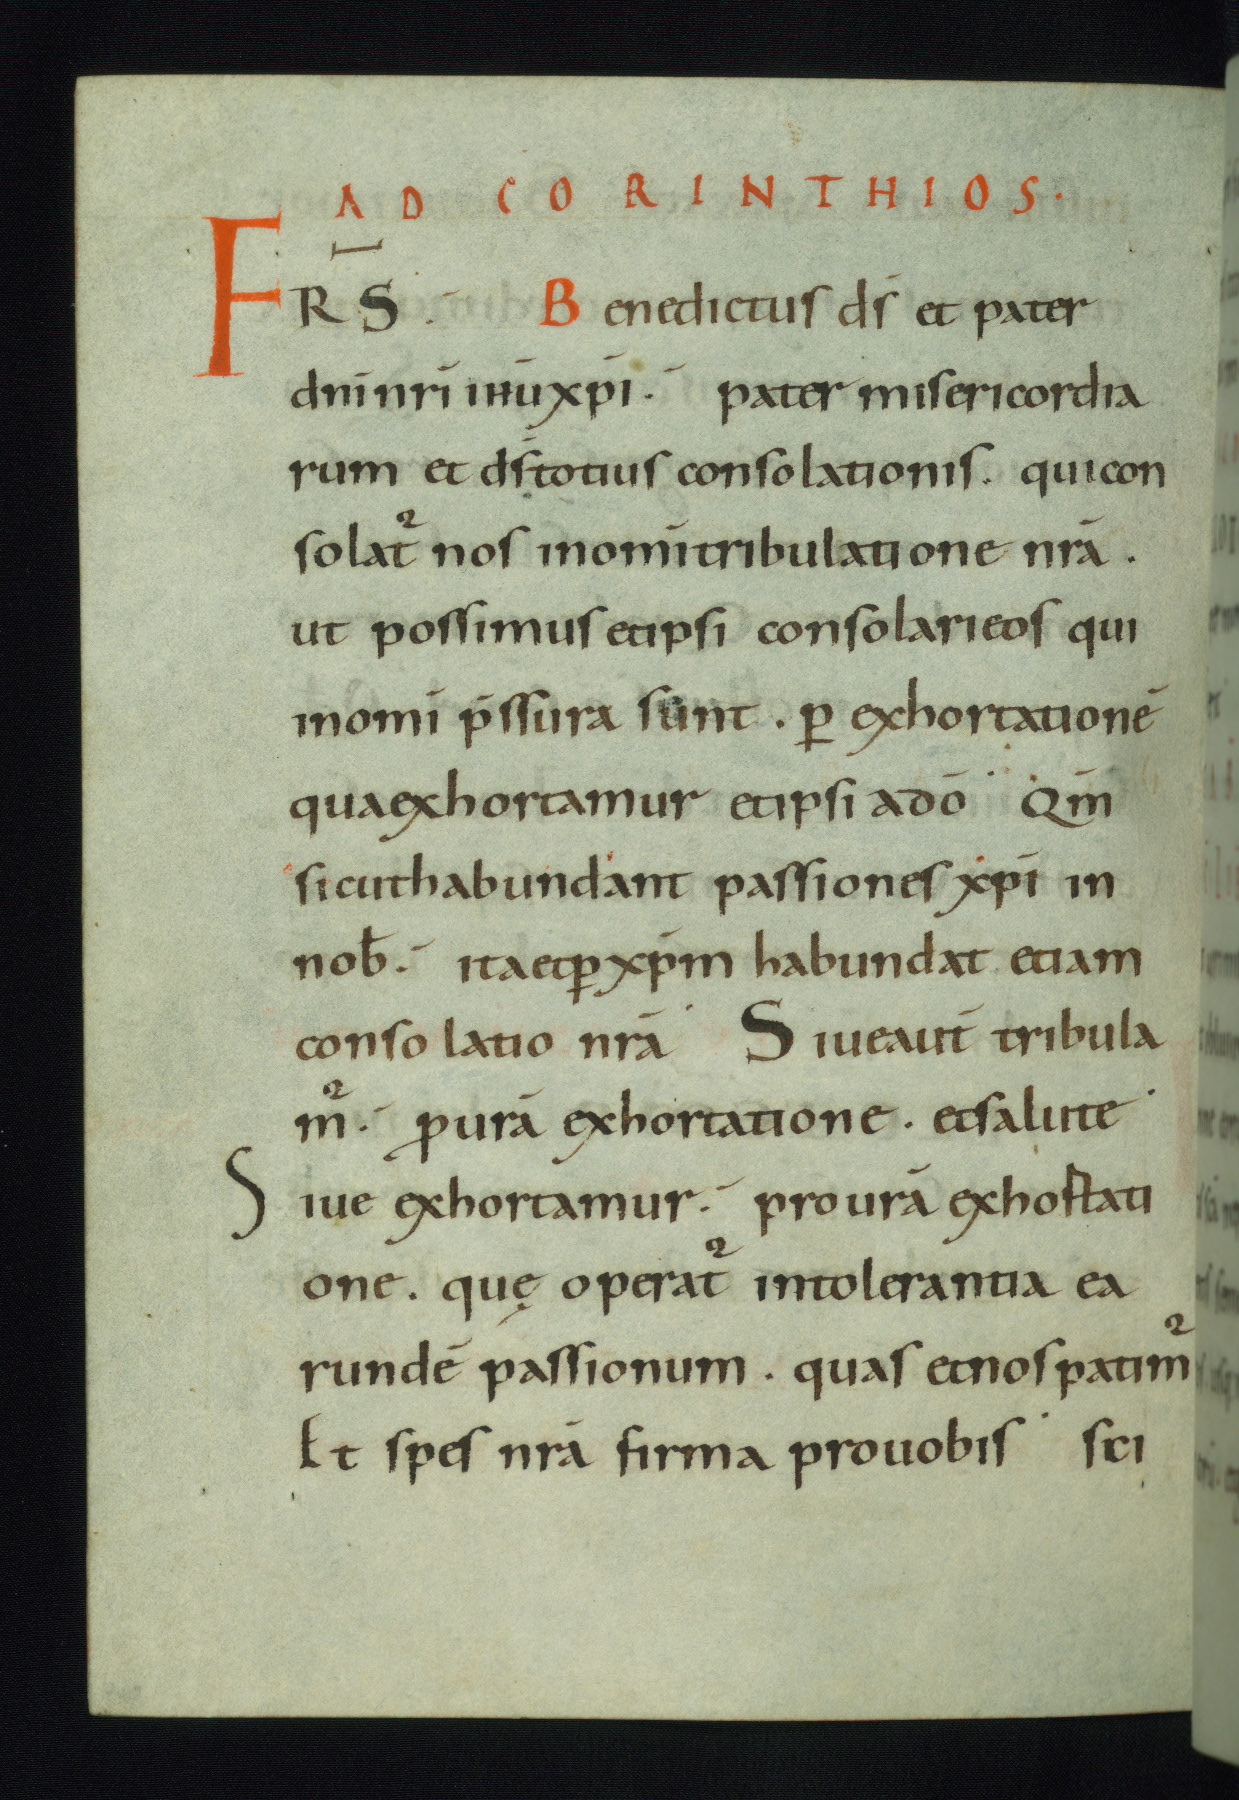 AD CORINTHIOS.
FR̄S. Benedictus ds̄ et pater
dnī nrī ihū xpī. pater misericordia
rum et ds̄ totius consolationis. qui con
solat᷑ nos in omī tribulatione nrā.
ut possimus et ipsi consolari eos qui
in omī p̄ssura sunt. ꝑ exhortationē
qua exhortamur et ipsi a dō Qm̄
sicut habundant passiones xpī in
nob̄. ita et ꝑ xpm̄ habundat etiam
consolatio nrā Siue aut̄ tribula
m᷑. ꝓ urā exhortatione. et salute
Siue exhortamur. pro urā exhortati
one. quę operat᷑ in tolerantia ea
rundē passionum. quas et nos patim᷑
Et spes nrā firma pro uobis sci